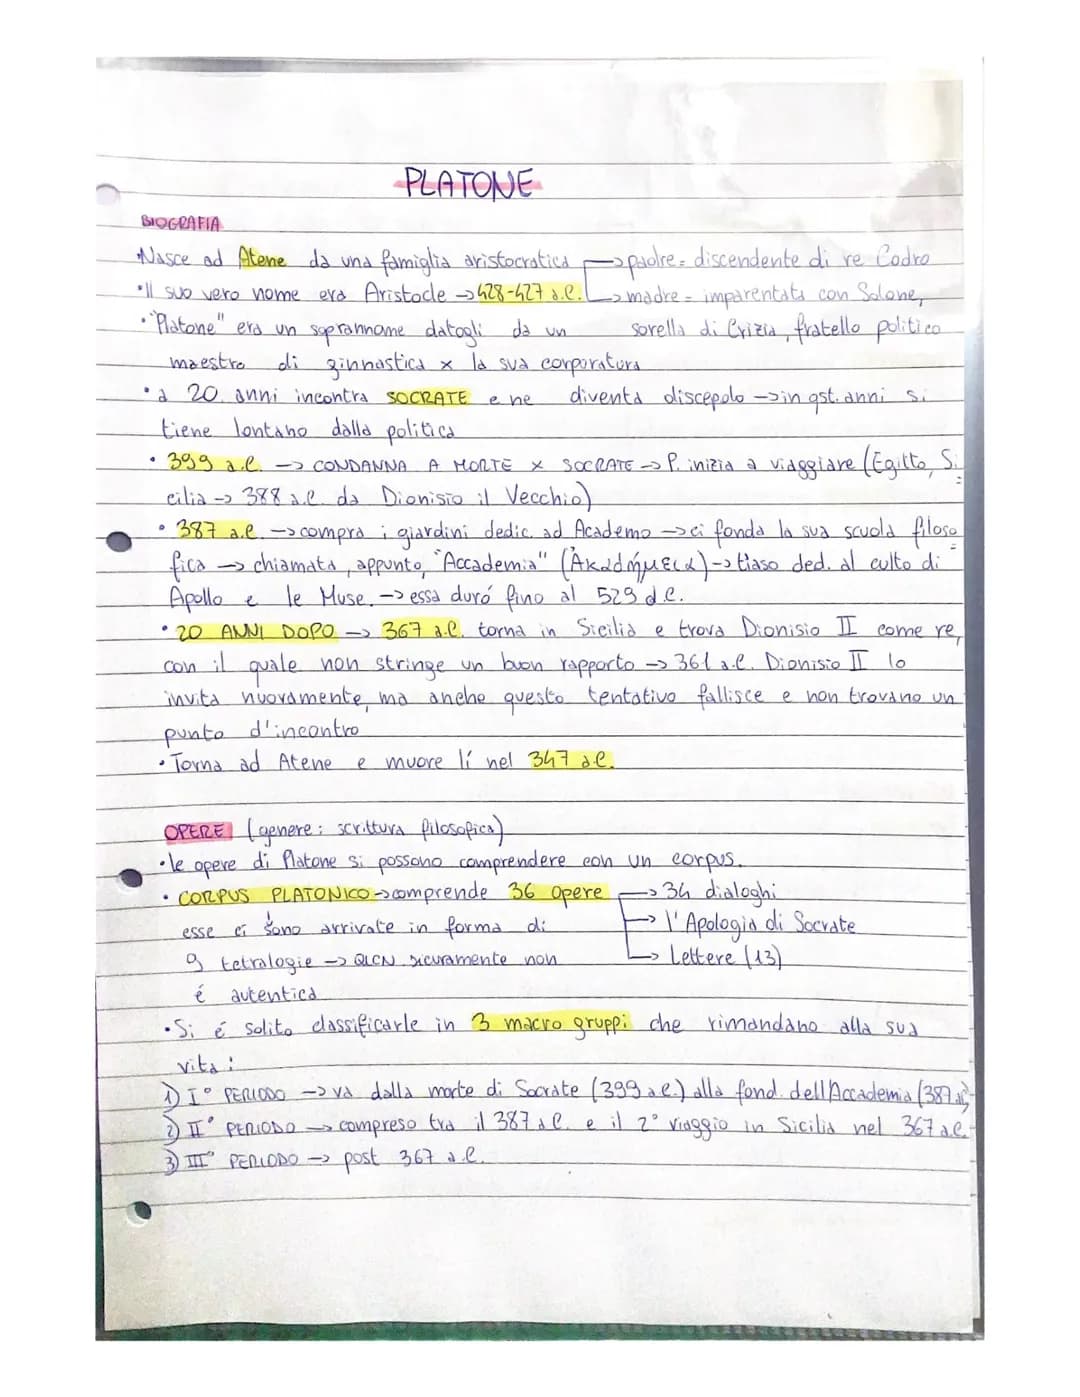 PLATONE
BIOGRAFIA
Nasce ad Atene da una famiglia aristocratica → padre = discendente di re Codro
•Il suo vero nome era Aristocle → 428-427 a.C. → madre = imparentata con Solone,
•"Platone" era un soprannome datogli da un sorella di Crizia, fratello politico
maestro di ginnastica x la sua corporatura
•a 20 anni incontra SOCRATE e ne diventa discepolo → in qst. anni si
tiene lontano dalla politica
• 399 a.C. → CONDANNA A MORTE x SOCRATE → P. inizia a viaggiare (Egitto, Si
cilia → 388 a.C. da Dionisio il Vecchio)
• 387 a.C. → compra i giardini dedic. ad Academo → ci fonda la sua scuola filoso
fica → chiamata, appunto, "Accademia" (Ἀκαdήμεια) → tiaso ded. al culto di
Apollo e le Muse. → essa duró fino al 529 d.C.
• 20 ANNI DOPO → 367 a.C. torna in Sicilia e trova Dionisio II come re,
con il quale non stringe un buon rapporto → 361 a.C. Dionisio II lo
invita nuovamente, ma anche questo tentativo fallisce e non trovano un
punto d'incontro
• Torna ad Atene e muore lí nel 347 a.C.
OPERE (genere: scrittura filosofica)
•le opere di Platone si possono comprendere con un corpus.
• CORPUS PLATONICO → comprende 36 opere → 34 dialoghi
esse ci sono arrivate in forma di → l'Apologia di Socrate
9 tetralogie → QLCN sicuramente non → Lettere (13)
é autentica
•Si é solito classificarle in 3 macro gruppi che rimandano alla sua
vita:
1) I° PERIODO → va dalla morte di Socrate (399 a.C.) alla fond. dell'Accademia (387 a.C.)
2) II° PERIODO → compreso tra il 387 a.C. e il 2° viaggio in Sicilia nel 367 a.C.
3) III° PERIODO → post 367 a.C.